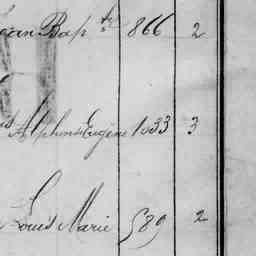 Jean Bapte 866 2
Alphonse Eugène 1033 3
Louis Marie 589 2